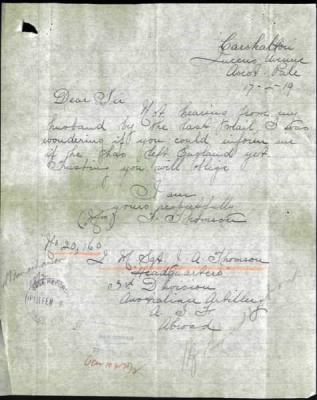 Carshalton
Queens Avenue
Ascot Vale
17-2-19
Dear Sir
Not hearing from my
husband by the last Mail, I was
wondering if you could inform me
if he has left England yet.
Trusting you will oblige
I am
yours respectfully
(Mrs) Thomson
No 20,160
Sgt A Thomson
Headquarters
3rd Division
Australian Artillery
A. I. F.
Abroad